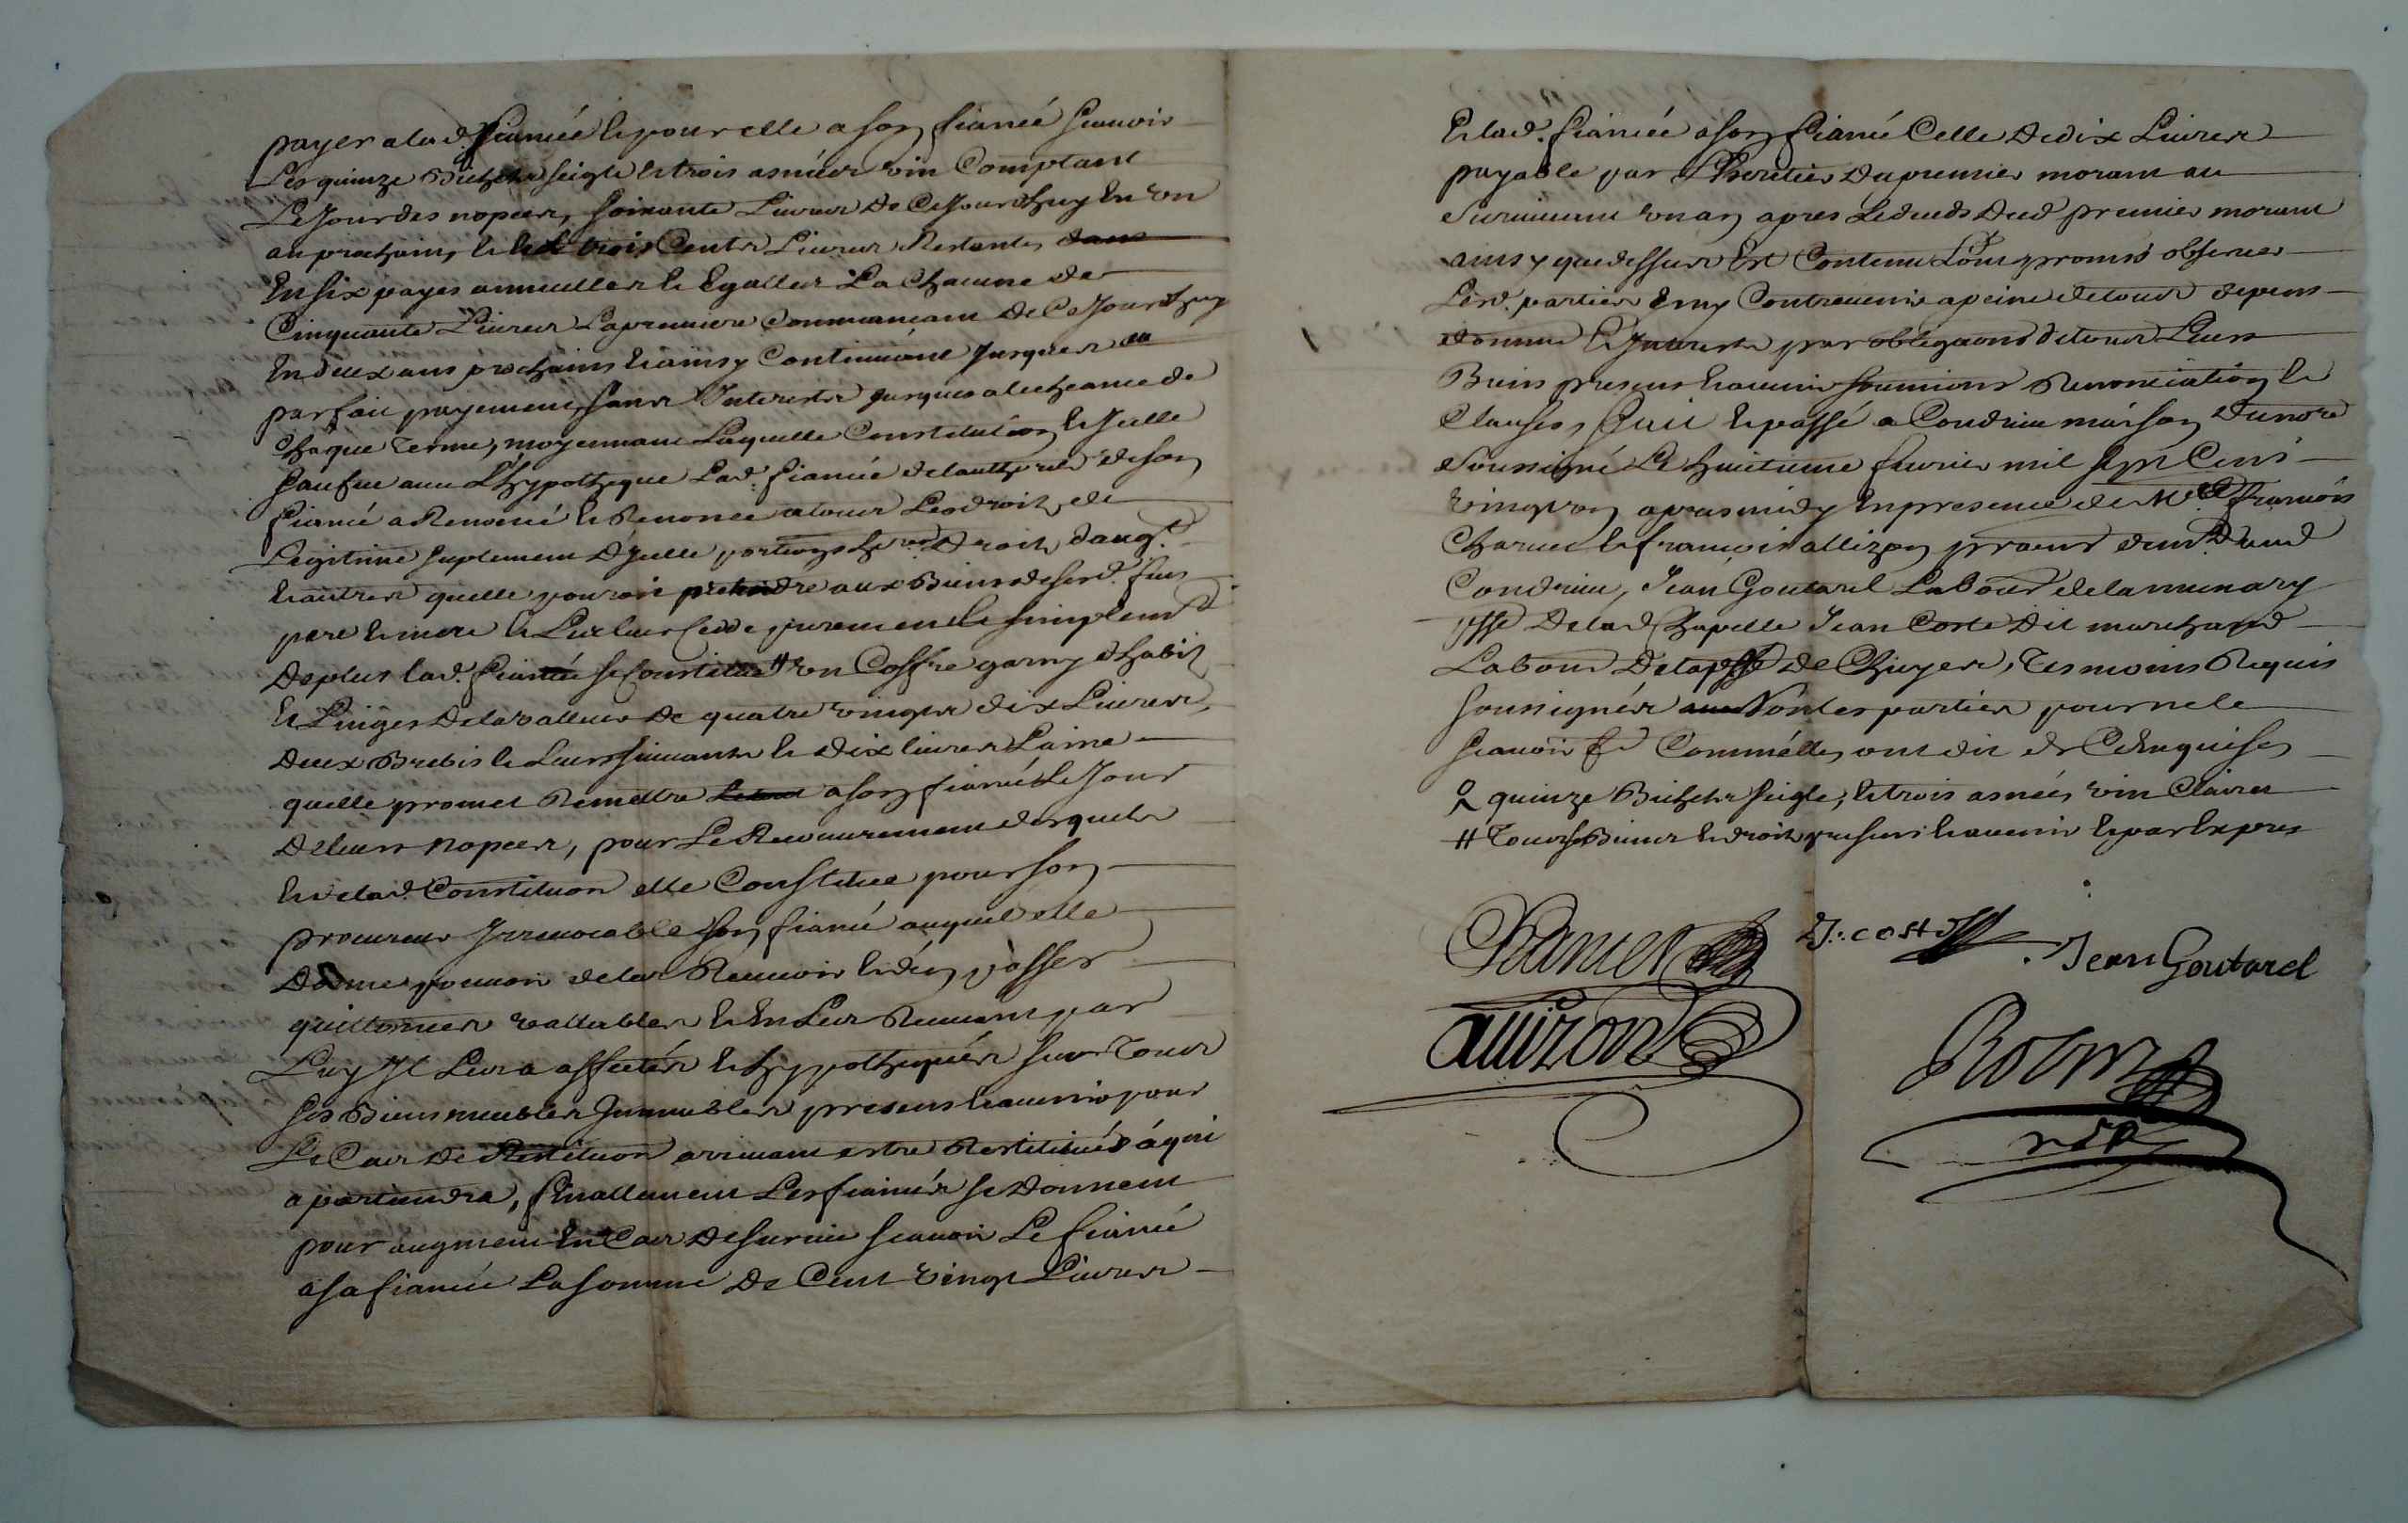 payer a lad. fiancée et pour elle a son fiancé scauoir
Les quinze Bichets seigle et trois asnées vin Comptant
Le Jour des nopces, soixante Liures de Ce Jourdhuy En un
an prochain, et les trois Cents Liures Restantes
En six payes annuelles et Egalles La Chacune de
Cinquante Liures La premiere Commancant de Ce Jourdhuy
En deux ans prochains et ainsy Continuant Jusques au
parfait payement, sans Interests jusques a lecheance de
Chaque terme, moyennant Laquelle Constitution et Icelle
sauf sue aucun L'hypotheque Lad. fiancée de lauthorité de son
fiancé a Renoncé et Renonce a tous Les droits de
Legitime suplement d'Icelle portions her.res Droits d'augt.
et autres quelle pouroit pretendre aux Biens de sesd. feus
pere et mere et Les leur Cedde purement et simplemt
De plus lad. fiancée se Constitue # un Coffre garny d'habits
et Linges De la valleur de quatre vingts dix Liures,
deux Brebis et Leurs suiuants et dix liures Laine
quelle promet Remettre a son fiancé Le Jour
De leurs nopces, pour Le Recouurement desquels
et de lad. Constituon elle Constitue pour son
procureur Irreuocable son fiancé auquel elle
Donne pouuoir de les Receuoir et d'en passer
quittances vallables et En Les Receuant par
Luy Il Les a affectés et hypothequés sur Tous
ses Biens meubles Immeubles presens et auenir pour
Le Cas de Restituon arriuant estre Restitués á qui
apartiendra, finallement Les fiancés se Donnent
pour augment En Cas de suruie scauoir Le fiancé
a sa fiancée La somme de Cent vingt Liures
Et lad. fiancée a son fiancé Celle De dix Liures
payable par L'heritier du premier mourant au
Suruiuant un an apres Le deceds dud. premier mourant
ainsy que dessus Est Contenu L'ont promis obseruer
Lesd. parties Et ny Contreuenir a peine de tous depens
domma. et Interests par obligaons de tous Leurs
Biens presens et auenir soumions Renonciation et
Clauses, fait et passé a Condrieu maison du nore
Soussigné Le huitieme feurier mil sept Cens
vingt un apres midy En presence de Me. françois
Charuet et françois allizon praens dud.
Condrieu, Jean Goutarel Labour de la munary
psse De lad. Chapelle Jean Coste Dit marchand
Labour De la psse de Chuyer, tesmoins Requis
soussignés Non les parties pour ne le
scauoir fe. Comme elles ont dit de Ce Enquises
quinze Bichets seigle, et trois asnées vin Clairet
# Tous ses Biens et droits presens et auenir et par Expres
Charuet J: coste
Jean Goutarel
allizon
Robin
nore